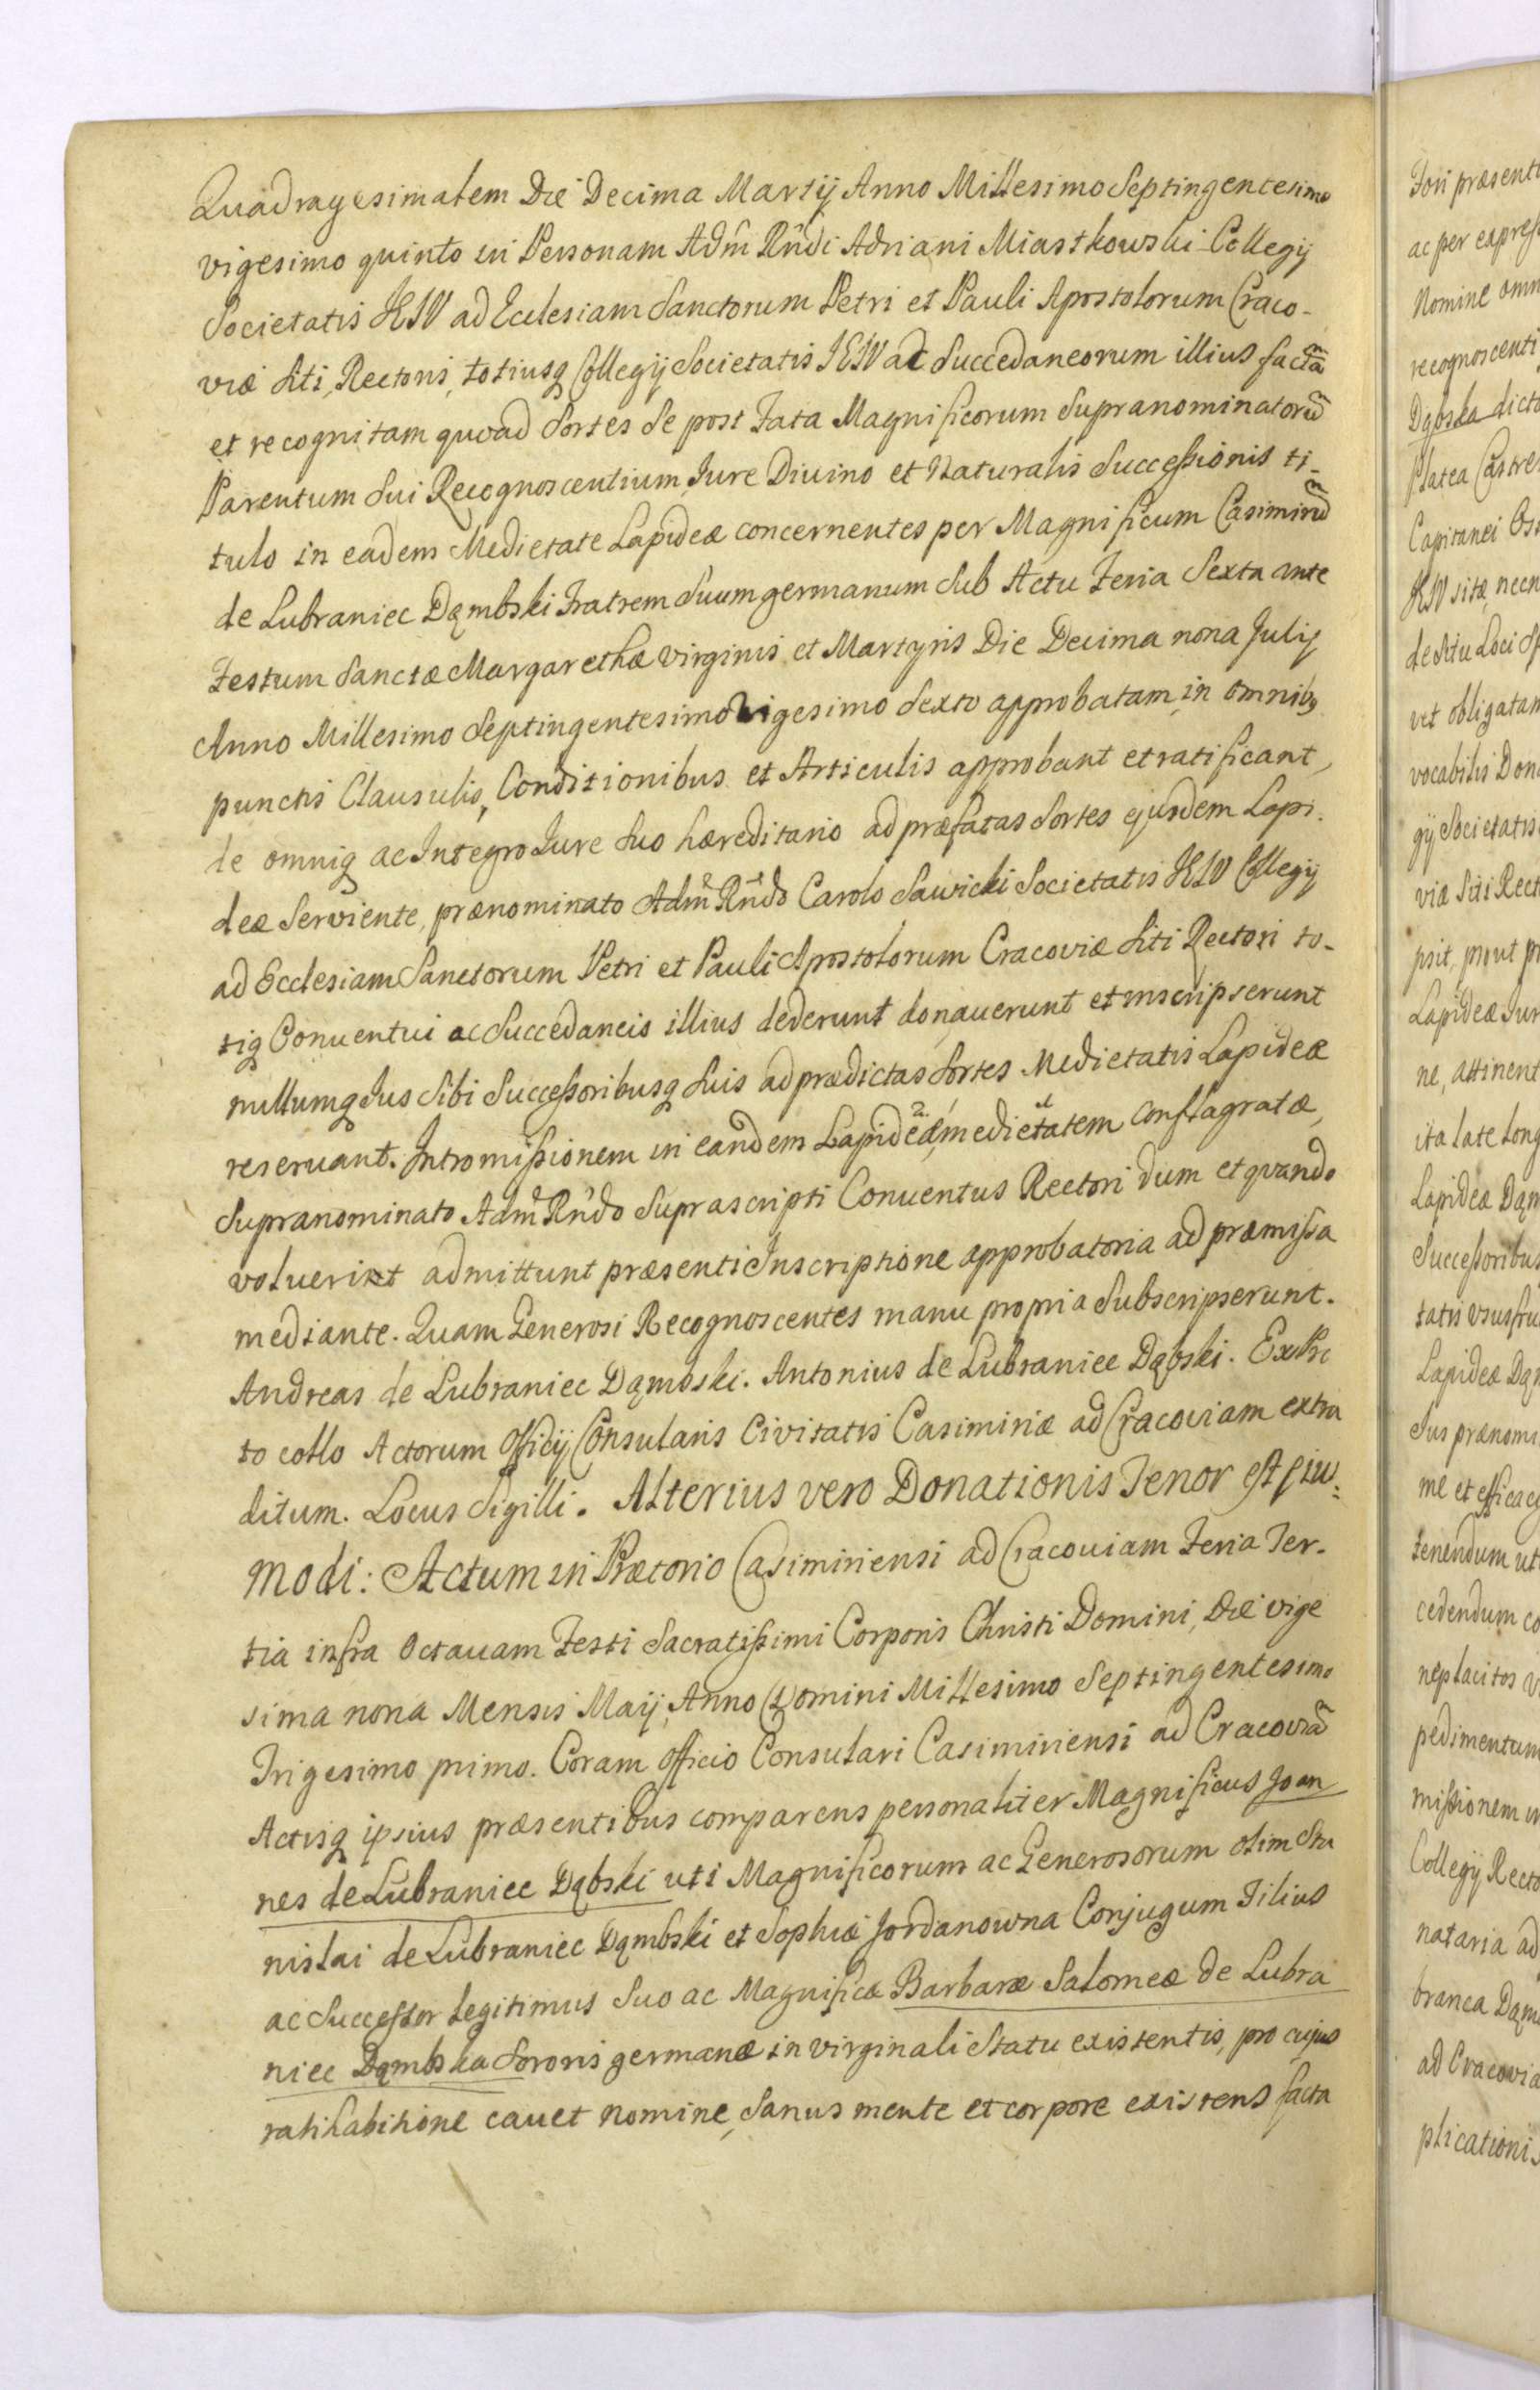 Quadragesimalem Die Decima Martij Anno Millesimo Septingentesimo
vigesimo quinto in Personam Adm̃ Rñdi Adriani Miastkowski Collegij
Societatis JESV ad Ecclesiam Sanctorum Petri et Pauli Apostolorum Craco-
viæ siti, Rectoris, totiusq Collegij Societatis JESV ac Succedaneorum illius factã
et recognitam quoad Sortes se post Fata Magnificorum Supranominatorũ
Parentum sui Recognoscentium Jure Divino et Naturalis Successionis ti-
tulo in eadem Medietate Lapideæ concernentes per Magnificum Casimirũ
de Lubraniec Dąmbski Fratrem suum germanum sub Actu Feria Sexta ante
Festum Sanctæ Margarethæ virginis et Martyris Die Decima nona Julij
Anno Millesimo Septingentesimo Vigesimo Sexto approbatam, in omnibq
punctis Clausulis, Conditionibus et Articulis approbant et ratificant,
de omniq ac Integro Jure suo hæreditario ad præfatas Sortes ejusdem Lapi-
deæ Serviente, prænominato Adm̃ Rñdo Carolo Sawicki Societatis JESV Collegij
ad Ecclesiam Sanctorum Petri et Pauli Apostolorum Cracoviæ siti Rectori to-
tiq Conuentui ac Succedaneis illius dederunt donauerunt et inscripserunt
nullumq Jus sibi Successoribusq suis ad prædictas Sortes Medietatis Lapideæ
reseruant. Intromissionem in eandem Lapideæ, medietatem conflagratæ,
Supranominato Adm̃ Rñdo Suprascripti Conuentus Rectori dum et quando
voluerint admittunt præsenti Inscriptione approbatoria ad præmissa
mediante. Quam Generosi Recognoscentes manu propria Subscripserunt.
Andreas de Lubraniec Dąmbski. Antonius de Lubraniec Dąbski. Ex Pro
to collo Actorum Officij Consularis Civitatis Casimiriæ ad Cracoviam extra
ditum. Locus Sigilli. Alterius vero Donationis Tenor est eius-
modi: Actum in Prætorio Casimiriensi ad Cracouiam Feria Ter-
tia infra Octauam Festi Sacratissimi Corporis Christi Domini, Die vige
sima nona Mensis Maij, Anno Domini Millesimo Septingentesimo
Trigesimo primo. Coram Officio Consulari Casimiriensi ad Cracoviã
Actisq ipsius præsentibus comparens personaliter Magnificus Joan
nes de Lubraniec Dąbski uti Magnificorum ac Generosorum olim Sta
nislai de Lubraniec Dąmbski et Sophiæ Jordanowna Conjugum Filius
ac Successor legitimus suo ac Magnificæ Barbaræ Salomeæ de Lubra
niec Dąmbska Sororis germanæ in virginali Statu existentis, pro cujus
ratihabitione cauet nomine, Sanus mente et corpore existens facta
Fori præsenti
ac per expreß
Nomine omn
recognoscenti
Dąbska dicto
Platea Castre
Capitanei
JESV sitæ, necn
de situ Loci
vel obligatam
vocabilis Dona
gij Societatis
viæ Siti Rect
psit, prout
Lapideæ Jur
ne, attinent
ita late long
Lapideæ Dąm
Successoribus
tatis ususfru
Lapideæ Dąm
Jus prænomi
me et efficaci
tenendum ut
cedendum co
neplacitos
pedimentum
missionem in
Collegij Recto
nataria ad
branca Dąm
ad Cracovia
plicationis